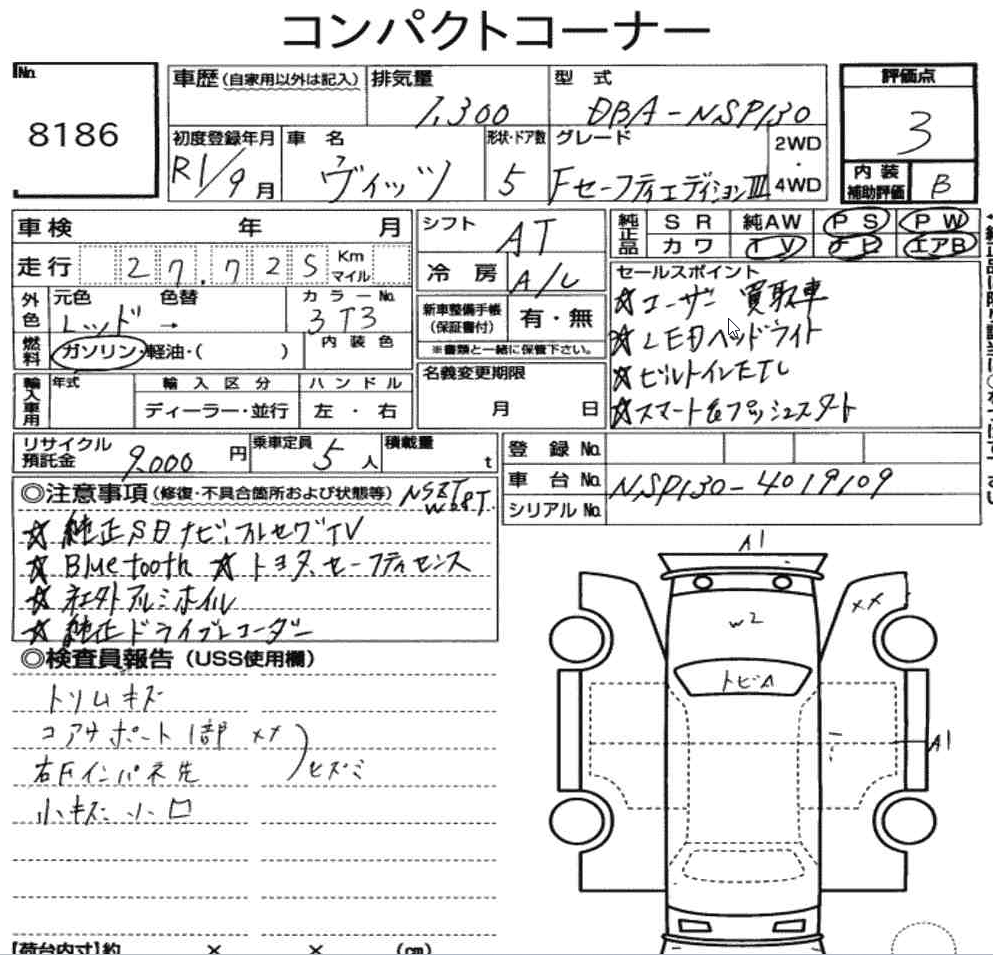 コンパクトコーナー
No. 8186
車歴(自家用以外は記入)
排気量 1,300
型式 DBA-NSP130
評価点 3
初度登録年月 R1/9月
車名 ヴィッツ
形状・ドア数 5
グレード FセーフティエディションⅢ
2WD・4WD
内装補助評価 B
車検 年 月
シフト AT
純正品 SR 純AW PS PW
カワ TV エアB
走行 27,725 Km マイル
冷房 A/C
セールスポイント
☆ユーザー買取車
☆LEDヘッドライト
☆ビルトインETC
☆スマート&プッシュスタート
外色 元色 レッド → 色替
カラーNo. 3T3
新車整備手帳(保証書付) 有・無
※書類と一緒に保管下さい。
燃料 ガソリン・軽油・( )
内装色
輸入車用 年式
輸入区分 ディーラー・並行
ハンドル 左・右
名義変更期限 月 日
リサイクル預託金 9,000円
乗車定員 5人
積載量 t
登録No.
車台No. NSP130-4019109
シリアルNo.
◎注意事項(修復・不具合箇所および状態等) NSZT W68T
☆純正SDナビ.フルセグTV
☆Bluetooth ☆トヨタ.セーフティセンス
☆社外アルミホイル
☆純正ドライブレコーダー
◎検査員報告(USS使用欄)
トリムキズ
コアサポート1部 XX
右Fインパネ先
ヒズミ
小キズ 小凹
A1
W2
XX
トビA
A1
【荷台内寸】約 × × (cm)